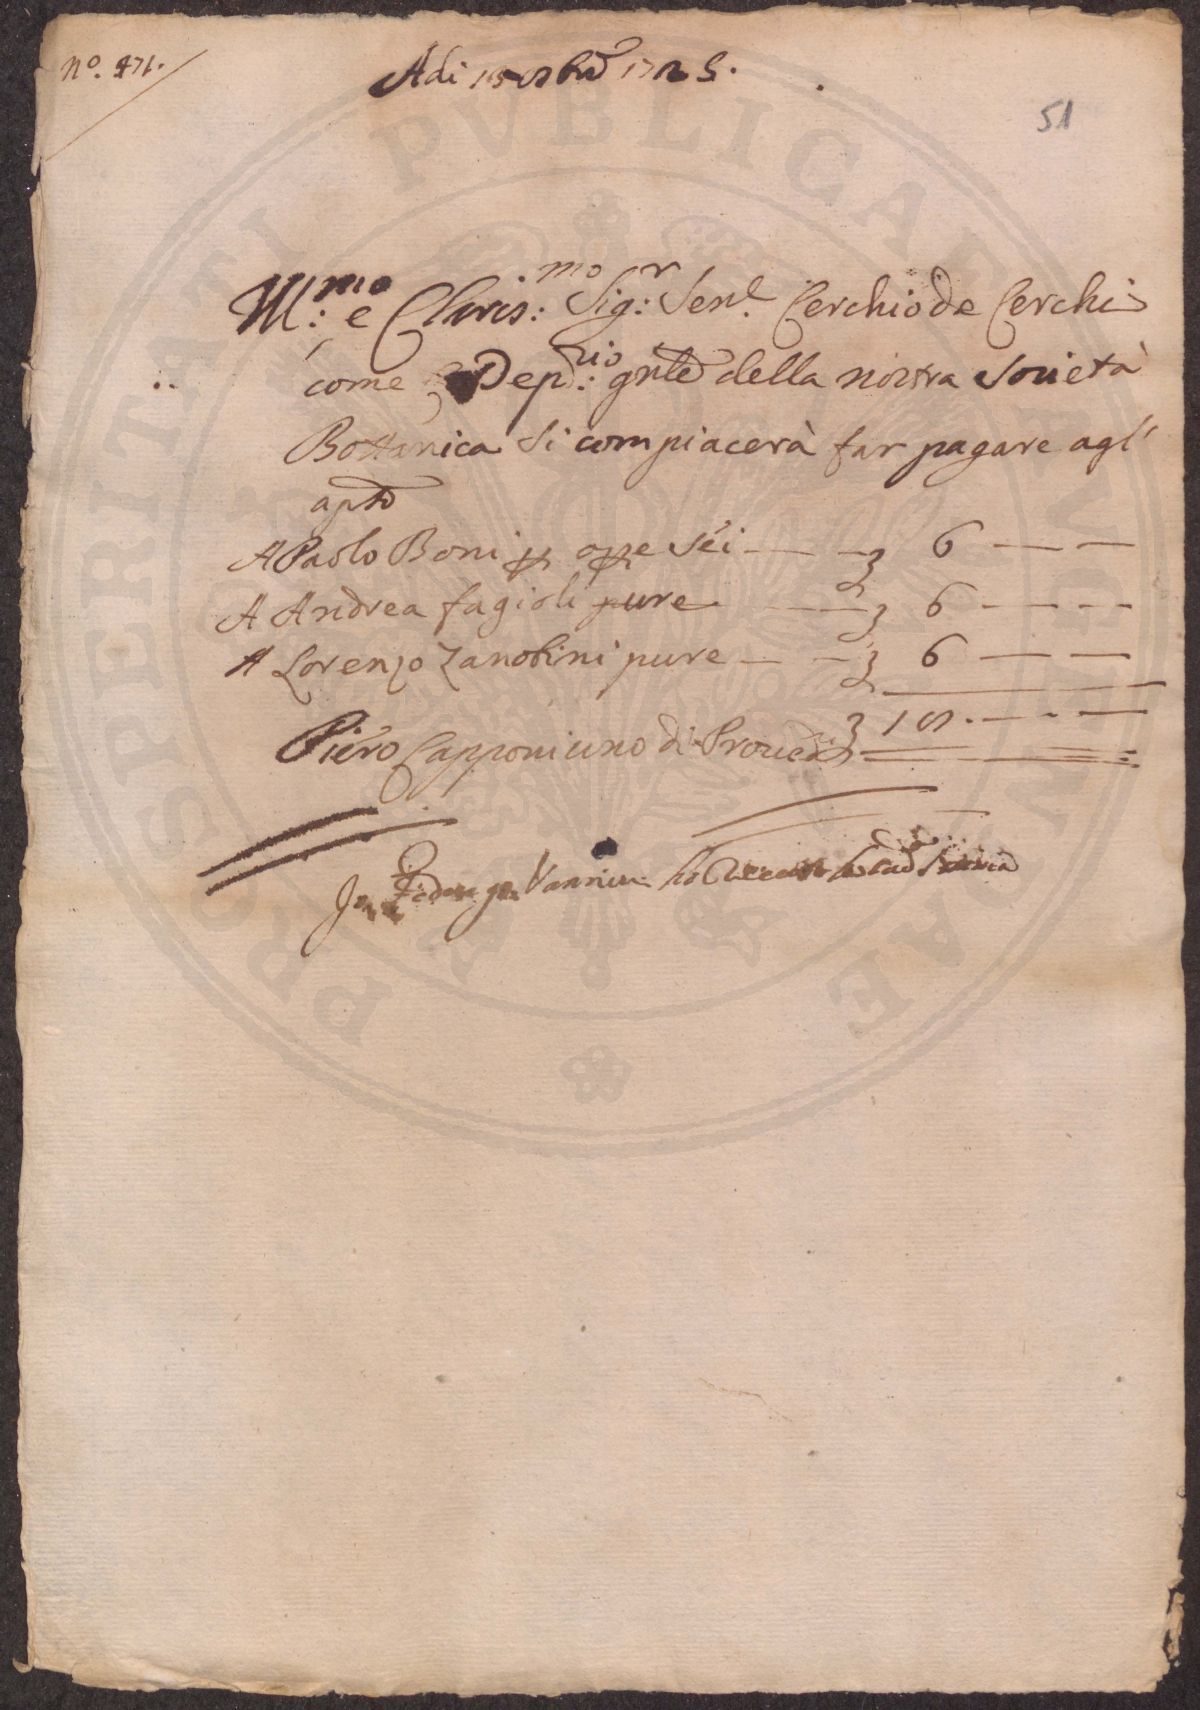 No. 471.
Adi 15 8bre 1725.
51
Ill:mo e Claris:mo Sig:r Sen.e Cerchio de Cerchi
come Dep:rio gnle della nostra Società
Bottanica si compiacerà far pagare agl'
apto
A Paolo Boni p ope sei — 6 —
A Andrea fagioli pure — 6 —
A Lorenzo Zanobini pure — 6 —
Piero Capponi uno di Proved 18. —
Io Vannucci ho
PROSPERITATI PVBLICAE AVGENDAE